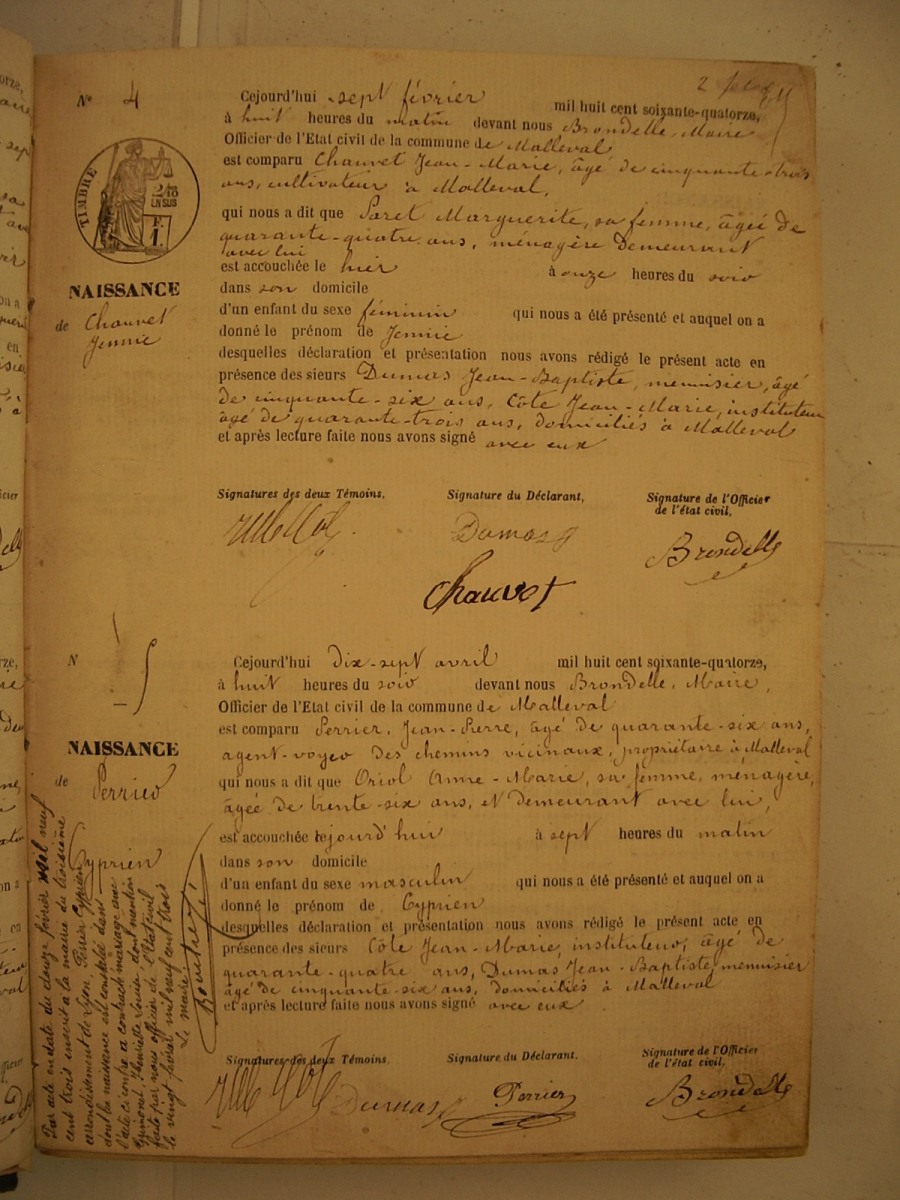 N° 4
TIMBRE
2/10 EN SUS
F. 1.
NAISSANCE
de Chauvet
Jennie
Cejourd'hui sept février mil huit cent soixante-quatorze,
à huit heures du matin devant nous Brondelle Maire
Officier de l'Etat civil de la commune de Malleval
est comparu Chauvet Jean-Marie, âgé de cinquante-trois
ans, cultivateur à Malleval,
qui nous a dit que Paret Marguerite, sa femme, âgée de
quarante-quatre ans, ménagère demeurant
avec lui
est accouchée le hier à onze heures du soir
dans son domicile
d'un enfant du sexe féminin qui nous a été présenté et auquel on a
donné le prénom de Jennie
desquelles déclaration et présentation nous avons rédigé le présent acte en
présence des sieurs Dumas Jean-Baptiste, menuisier, âgé
de cinquante-six ans, Côte Jean-Marie, instituteur
âgé de quarante-trois ans, domiciliés à Malleval
et après lecture faite nous avons signé avec eux
Signatures des deux Témoins. Signature du Déclarant, Signature de l'Officier
de l'état civil.
Dumas Brondelle
Chauvet
N 5
NAISSANCE
de Perrier
Cyprien
Cejourd'hui dix-sept avril mil huit cent soixante-quatorze,
à huit heures du soir devant nous Brondelle, Maire,
Officier de l'Etat civil de la commune de Malleval
est comparu Perrier, Jean-Pierre, âgé de quarante-six ans,
agent-voyer des chemins vicinaux, propriétaire à Malleval
qui nous a dit que Oriol Anne-Marie, sa femme, ménagère,
âgée de trente-six ans, et demeurant avec lui,
est accouchée cejourd'hui à sept heures du matin
dans son domicile
d'un enfant du sexe masculin qui nous a été présenté et auquel on a
donné le prénom de Cyprien
desquelles déclaration et présentation nous avons rédigé le présent acte en
présence des sieurs Côte Jean-Marie, instituteur, âgé de
quarante-quatre ans, Dumas Jean-Baptiste, menuisier
âgé de cinquante-six ans, domiciliés à Malleval
et après lecture faite nous avons signé avec eux
Signatures des deux Témoins. Signature du Déclarant. Signature de l'Officier
de l'état civil.
Dumas Perrier Brondelle
Par acte en date du douze février mil neuf
cent trois inscrit à la mairie du troisième
arrondissement de Lyon, Perrier Cyprien
dont la naissance est constatée dans
l'acte ci-contre a contracté mariage avec
Henriette Louise, dont mention
faite par nous officier de l'Etat civil
le vingt février mil neuf cent trois
Le maire